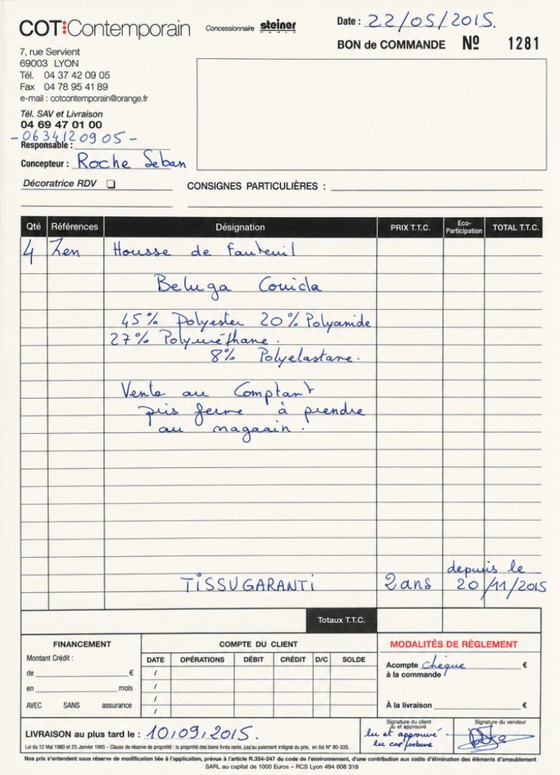 COT:Contemporain
Concessionnaire steiner
PARIS
Date : 22/05/2015.
BON de COMMANDE Nº 1281
7, rue Servient
69003 LYON
Tél. 04 37 42 09 05
Fax 04 78 95 41 89
e-mail : cotcontemporain@orange.fr
Tél. SAV et Livraison
04 69 47 01 00
-0634120905-
Responsable :
Concepteur : Roche Seban
Décoratrice RDV
CONSIGNES PARTICULIÈRES :
Qté Références Désignation PRIX T.T.C. Eco-Participation TOTAL T.T.C.
4 Zen Housse de Fauteuil
Beluga
45% Polyester 20% Polyamide
27% Polyuréthane.
8% Polyelastane.
Vente au Comptant
ferme à prendre
au magasin.
depuis le
TISSUGARANTI 2 ans 20/11/2015
Totaux T.T.C.
FINANCEMENT
Montant Crédit :
de € 
en mois
AVEC SANS assurance
COMPTE DU CLIENT
DATE OPÉRATIONS DÉBIT CRÉDIT D/C SOLDE
/
/
/
/
MODALITÉS DE RÈGLEMENT
Acompte chèque €
à la commande
À la livraison €
LIVRAISON au plus tard le : 10/09/2015.
Signature du client
lu et approuvé
lu et approuvé
lu
Signature du vendeur
Loi du 12 Mai 1980 et 25 Janvier 1985 - Clause de réserve de propriété : la propriété des biens livrés reste, jusqu'au paiement intégral du prix, en did N° 80-335.
Nos prix s'entendent sous réserve de modification liée à l'application, prévue à l'article R.354-247 du code de l'environnement, d'une contribution aux coûts d'élimination des éléments d'ameublement
SARL au capital de 1000 Euros – RCS Lyon 494 608 316